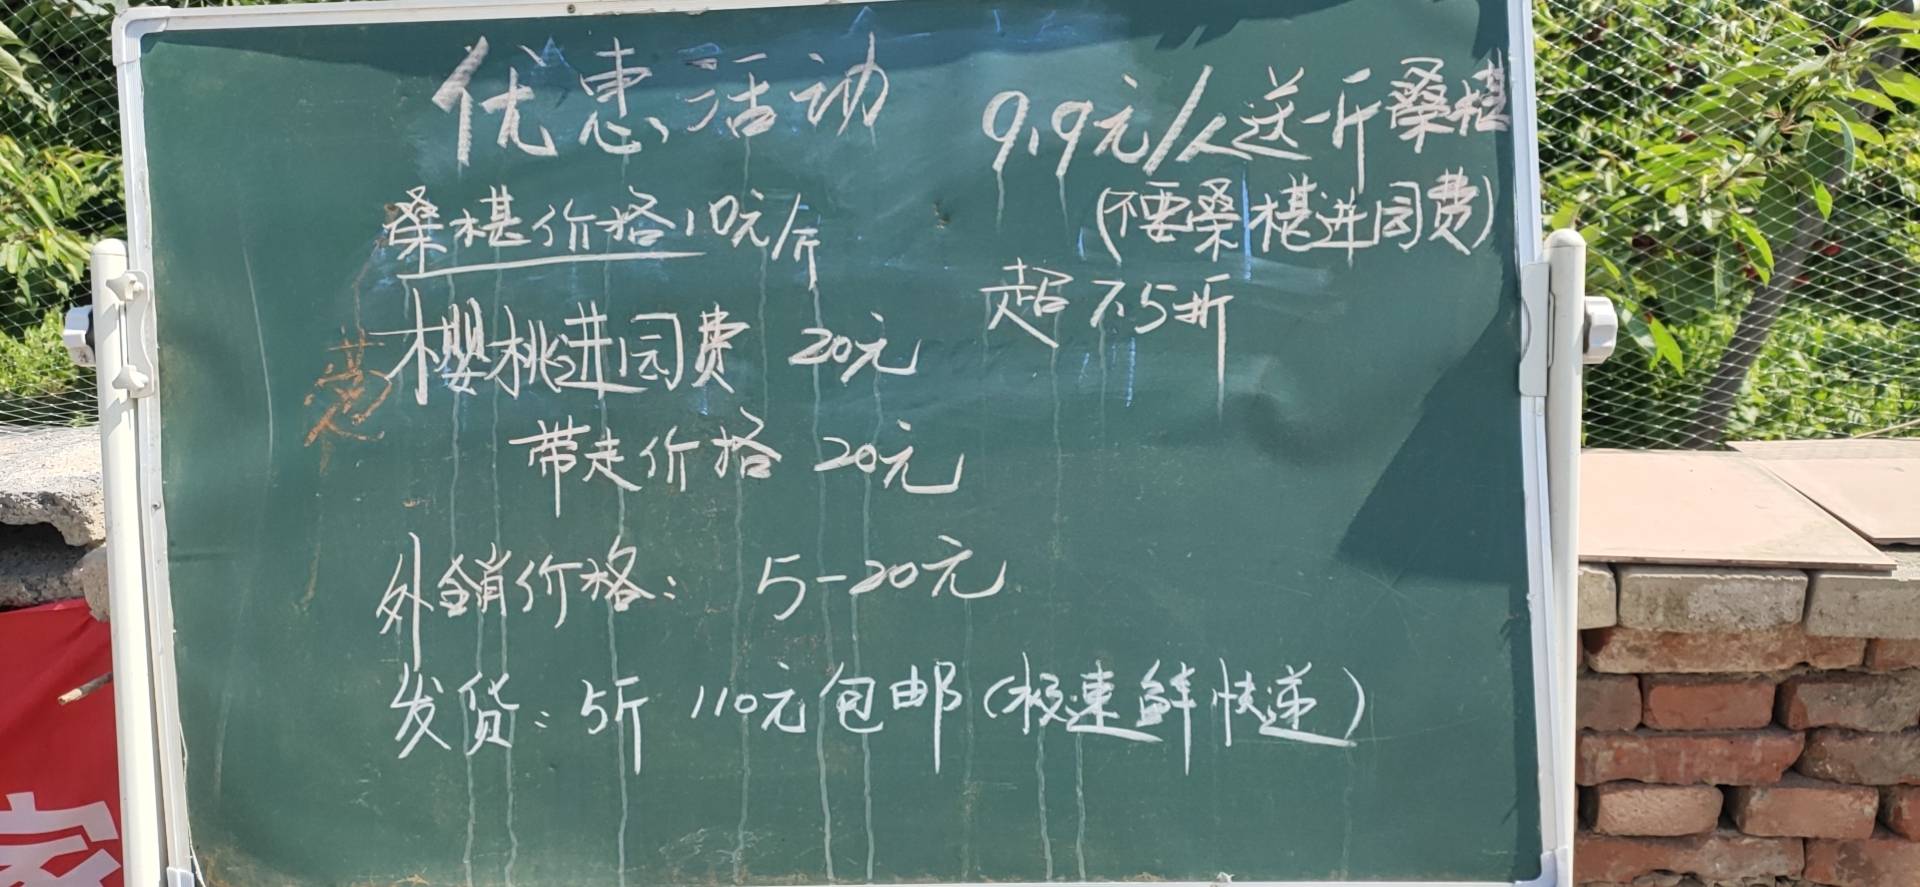 优惠活动
9.9元/人送一斤桑椹
桑椹价格10元/斤
(不要桑椹进园费)
超7.5折
樱桃进园费 20元
带走价格 20元
外销价格: 5-20元
发货: 5斤 110元包邮(极速鲜快递)